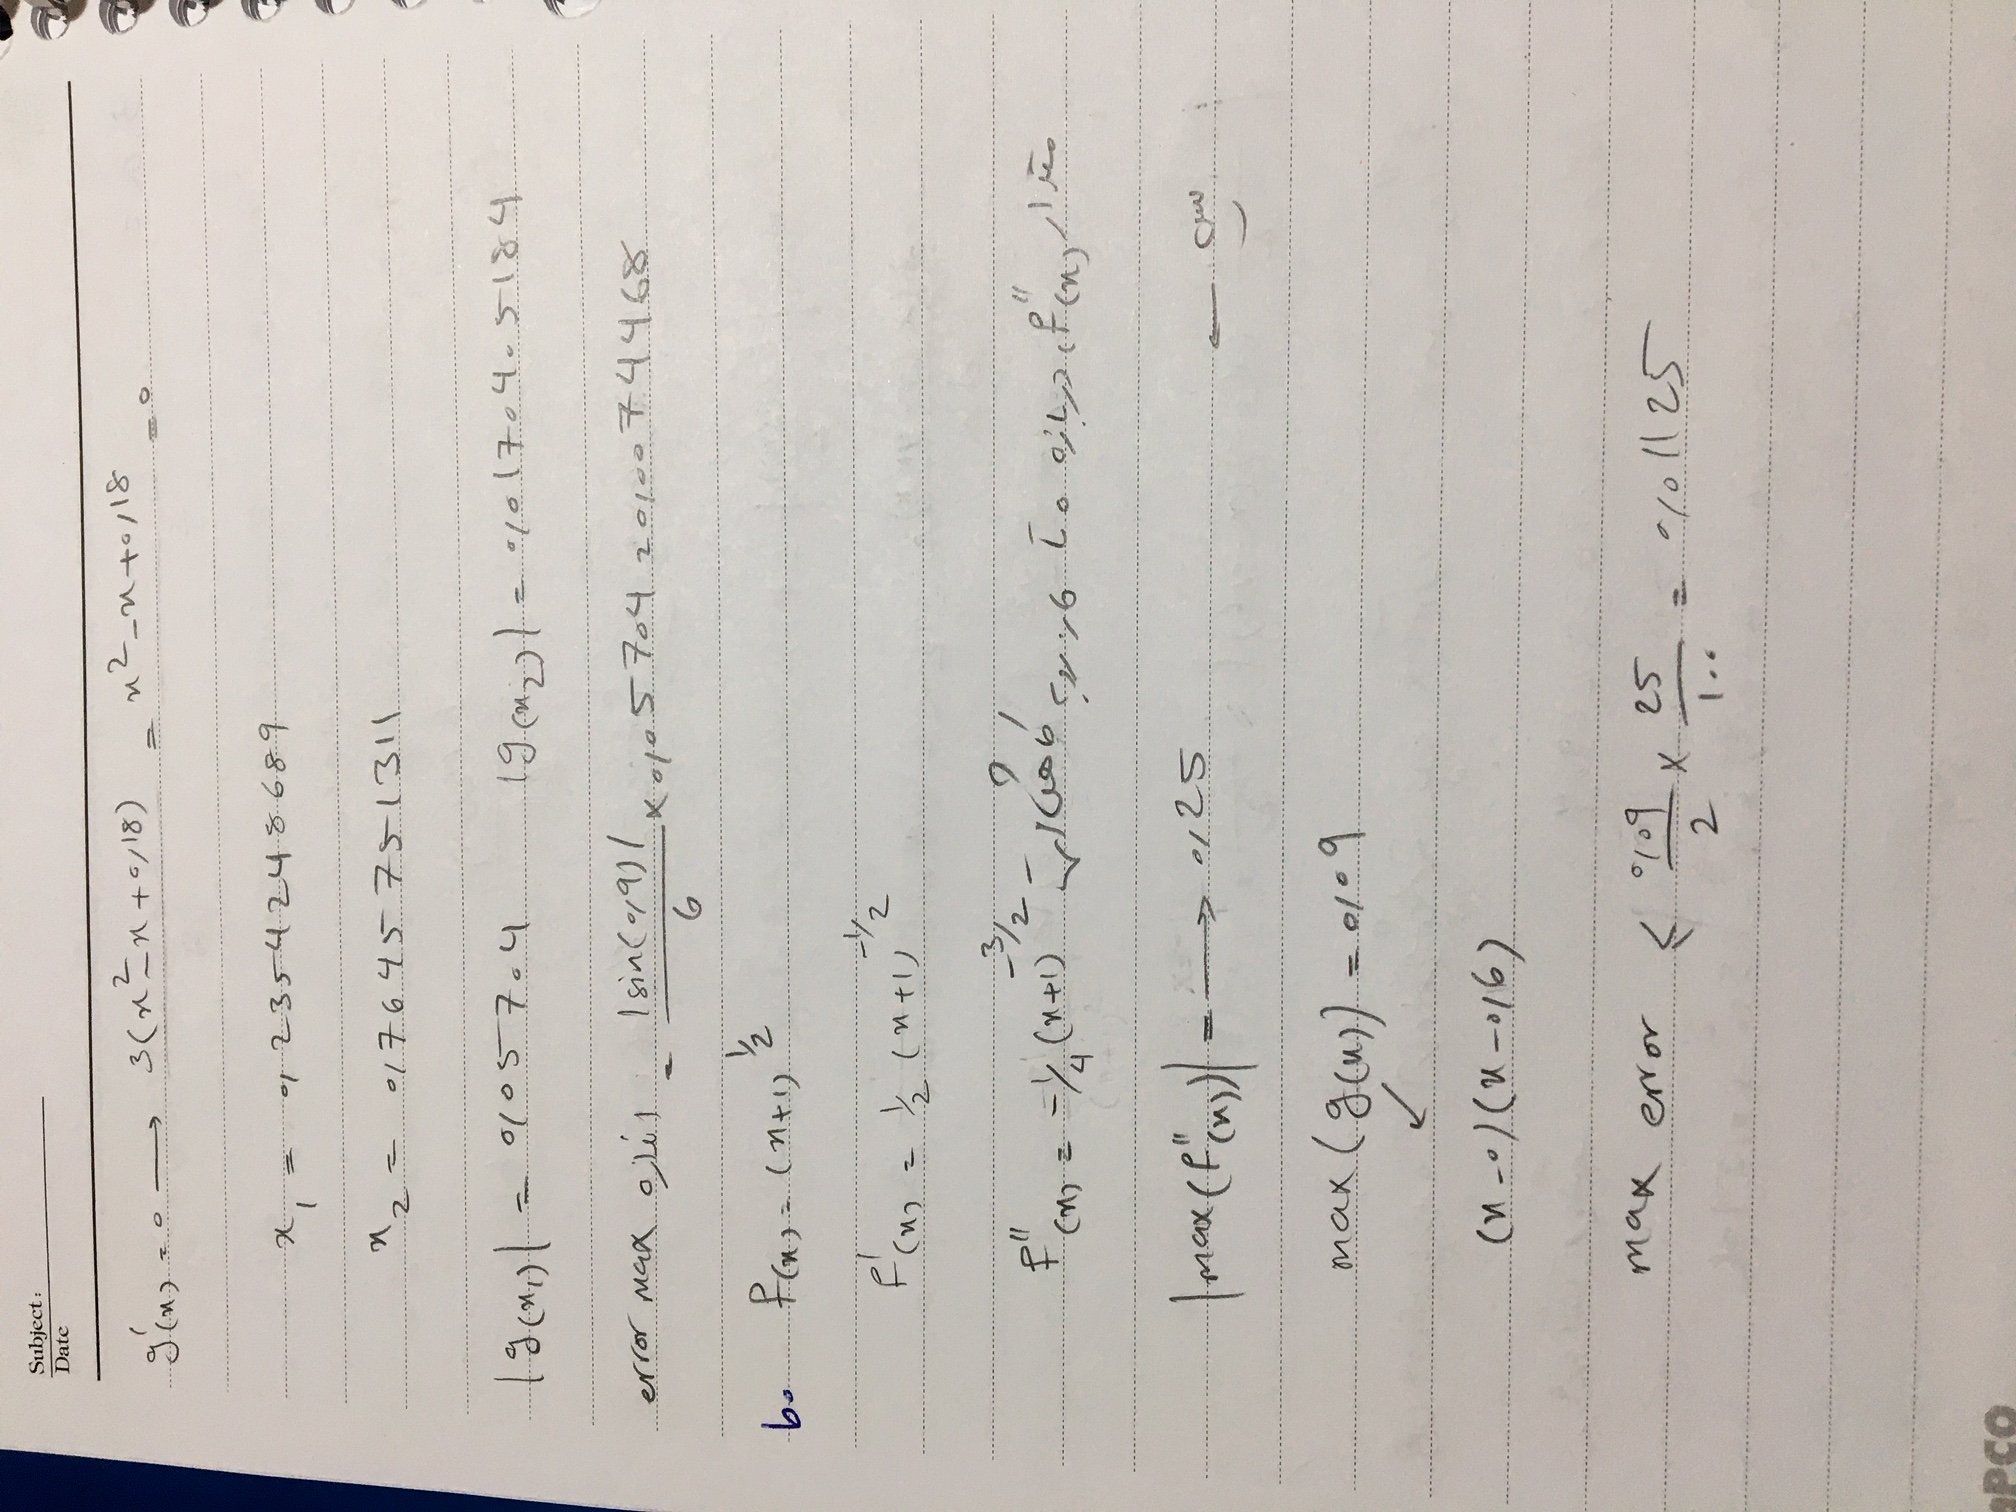 Subject:
Date
g'(x) = 0 → 3(x² - x + 0,18) = x² - x + 0,18 = 0
x₁ = 0,2354248689
x₂ = 0,76457751311
|g(x₁)| = 0,05704 |g(x₂)| = 0,0170405184
error max اندازه = |sin(0,9)|/6 × 0,05704 = 0,0074468
b. f(x) = (x+1)^1/2
f'(x) = 1/2 (x+1)^-1/2
f''(x) = -1/4 (x+1)^-3/2 مقدار f''(x) در بازه 0 تا 0,6 رو به کاهش است
|max(f''(x))| = → 0,25 پس ←
max(g(x)) = 0,09
↙
(x-0)(x-0,6)
max error ≤ 0,09/2 × 25/100 = 0,01125
PCO